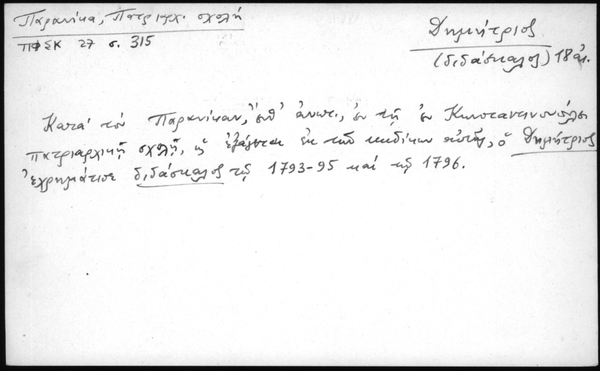 Παρανίκα, Πατριαρχ. σχολή
ΠΦΣΚ 27 σ. 315
Δημήτριος
(διδάσκαλος) 18 αἰ.
Κατά τόν Παρανίκαν, ἔνθ' ἀνωτ., ἐν τῇ ἐν Κωνσταντινουπόλει
πατριαρχικῇ σχολῇ, ὡς ἐξάγεται ἐκ τοῦ κώδικος αὐτῆς, ὁ Δημήτριος
ἐχρημάτισε διδάσκαλος τῷ 1793-95 καί τῷ 1796.